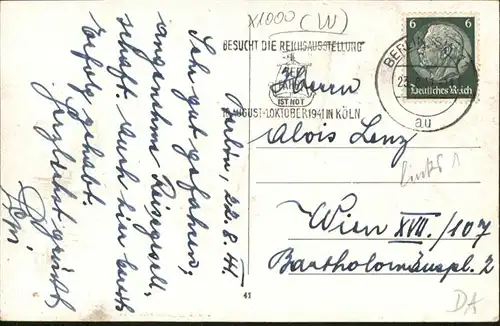 x1000 (W)
BESUCHT DIE REICHSAUSSTELLUNG
IST NOT
AUGUST-1.OKTOBER 1941 IN KÖLN
BERLIN
au
6 6
Deutsches Reich
Berlin, 22.8.41.
Sehr gut gefahren,
angenehme Reisegesell-
schaft. Auch hier bereits
Erfolg gehabt.
Herzlichst grüßt
Herrn
Alois Lenz
links 1
Wien XVII./107
Bartholomäuspl. 2
41
DA